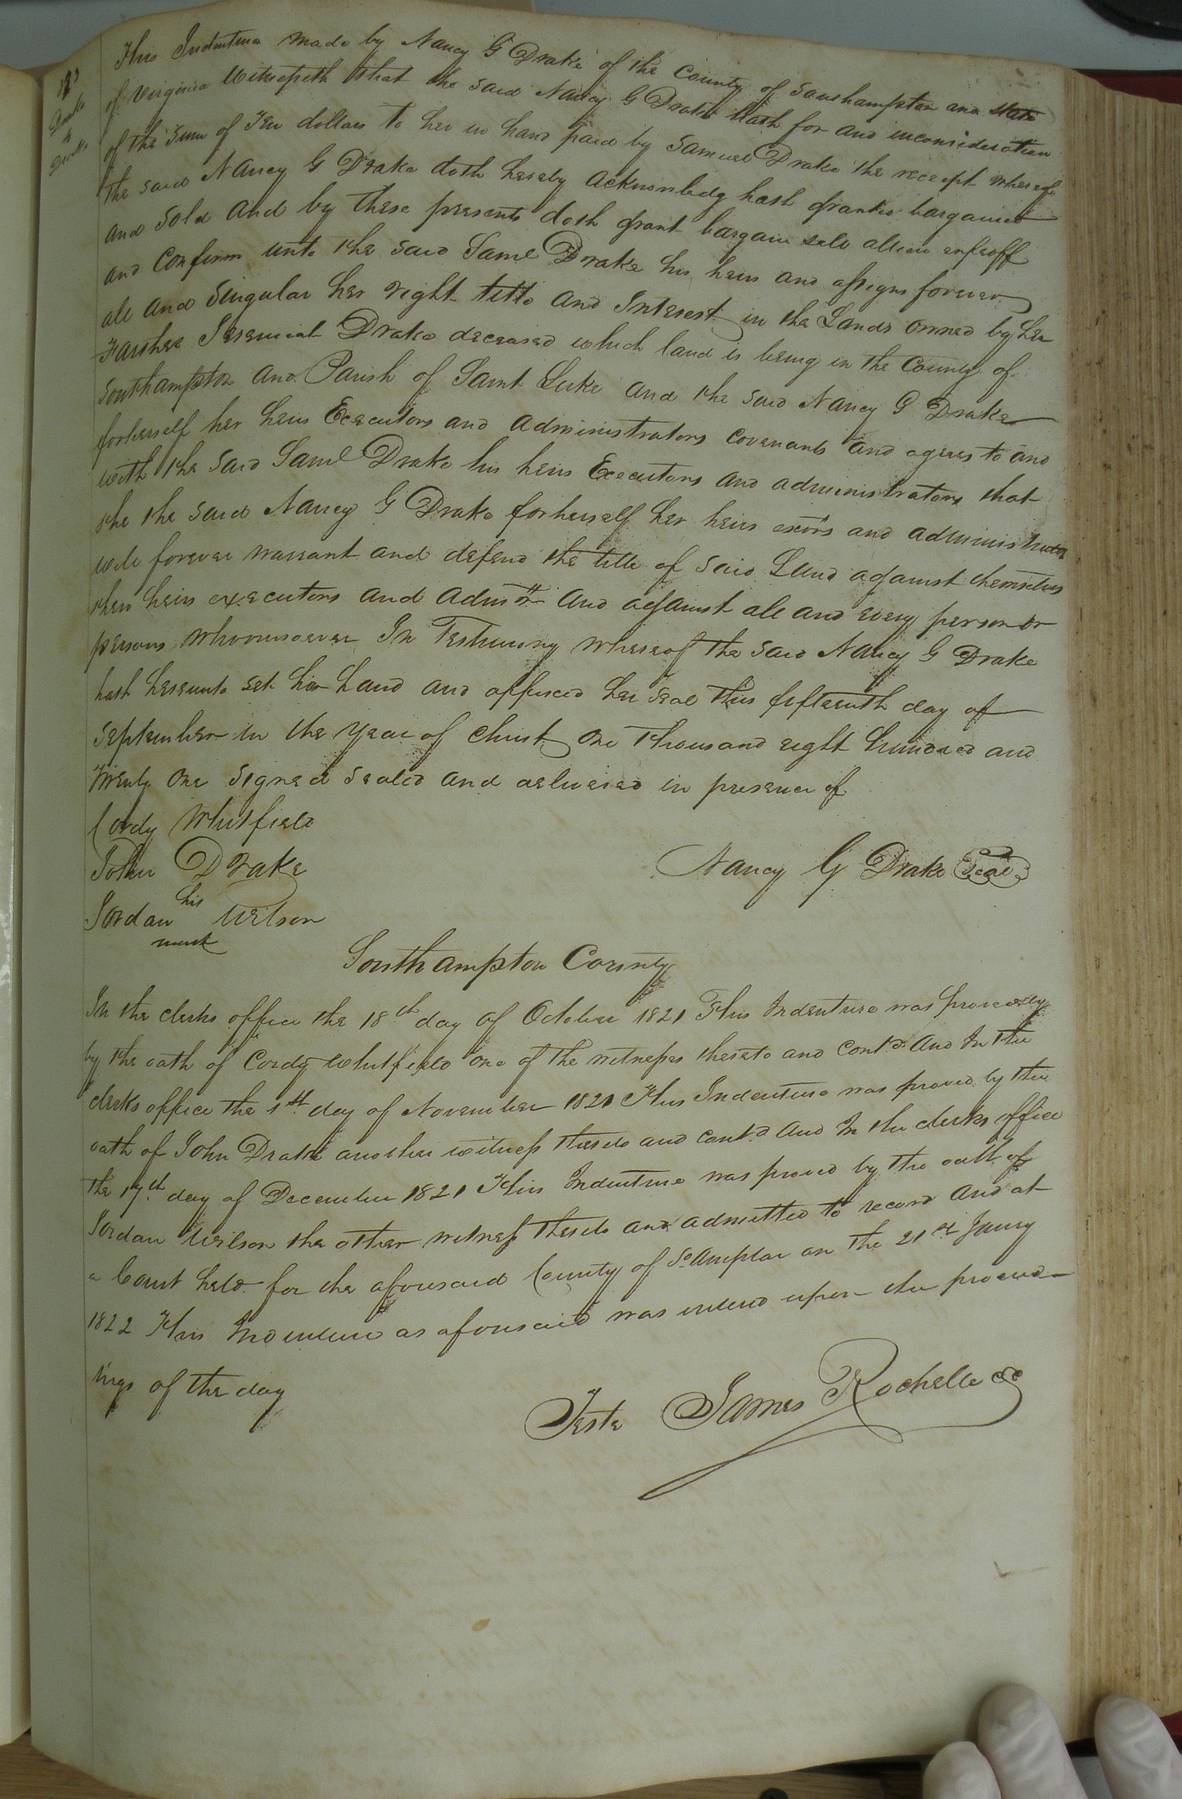 183
Drake
to
Drake
This Indenture made by Nancy G Drake of the County of Southampton and State
of Virginia Witnesseth that the said Nancy G Drake hath for and inconsideration
of the Sum of Ten dollars to her in hand paid by Samuel Drake the receipt whereof
the said Nancy G Drake doth hereby acknowledg hath granted bargained
and sold and by these presents doth grant bargain sell alien enfeoff
and Confirm unto the said Saml Drake his heirs and assigns forever
all and Singular her right title and Interest in the Lands owned by her
Farther Jeremiah Drake deceased which land is being in the County of
Southampton and Parish of Saint Luke and the said Nancy G Drake
forherself her heirs Executors and administrators covenants and agrees to and
with the said Saml Drake his heirs Executors and administrators that
she the said Nancy G Drake forherself her heirs exors and administrators
will forever warrant and defend the title of said Land against themselves
their heirs executors and admrs and against all and every person or
persons whomsoever In Testimony whereof the said Nancy G Drake
hath hereunto set her hand and affixed her seal this fifteenth day of
September in the year of Christ One thousand eight hundred and
Twenty One Signed Sealed and delivered in presence of
Cordy Whitfield
John Drake
Nancy G Drake Seal
Jordan his Wilson
mark
Southampton County
In the clerks office the 18th day of October 1821 This Indenture was proved
by the oath of Cordy Whitfield one of the witnesses thereto and contd. And In the
clerks office the 1st day of November 1821 This Indenture was proved by the
oath of John Drake another witness thereto and contd And In the clerks office
the 17th day of December 1821 This Indenture was proved by the oath of
Jordan Wilson the other witness thereto and admitted to record And at
a Court held for the aforesaid County of So.ampton on the 21st Jany
1822 This Indenture as aforesaid was entered upon the proceed-
ings of the day
Teste James Rochelle CC